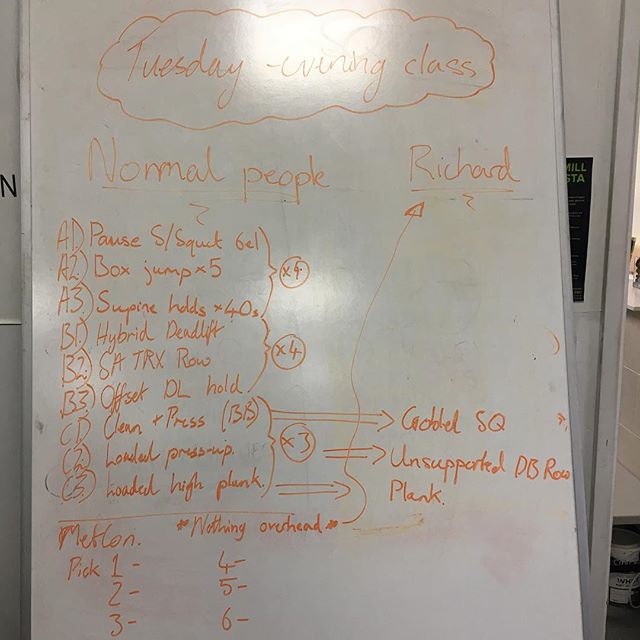 Tuesday evening class
Normal people
Richard
A1) Pause S/Squat 6e1
A2.) Box jump x5
A3.) Supine holds x40s
x4
B1.) Hybrid Deadlift
B2.) SA TRX Row
B3.) Offset DL hold
x4
C1) Clean + Press (BB) Gobbled SQ
C2.) Loaded press-up. Unsupported DB Row
C3.) Loaded high plank. Plank.
x3
MetCon. *Nothing overhead*
Pick 1- 4-
2- 5-
3- 6-
N
MILL